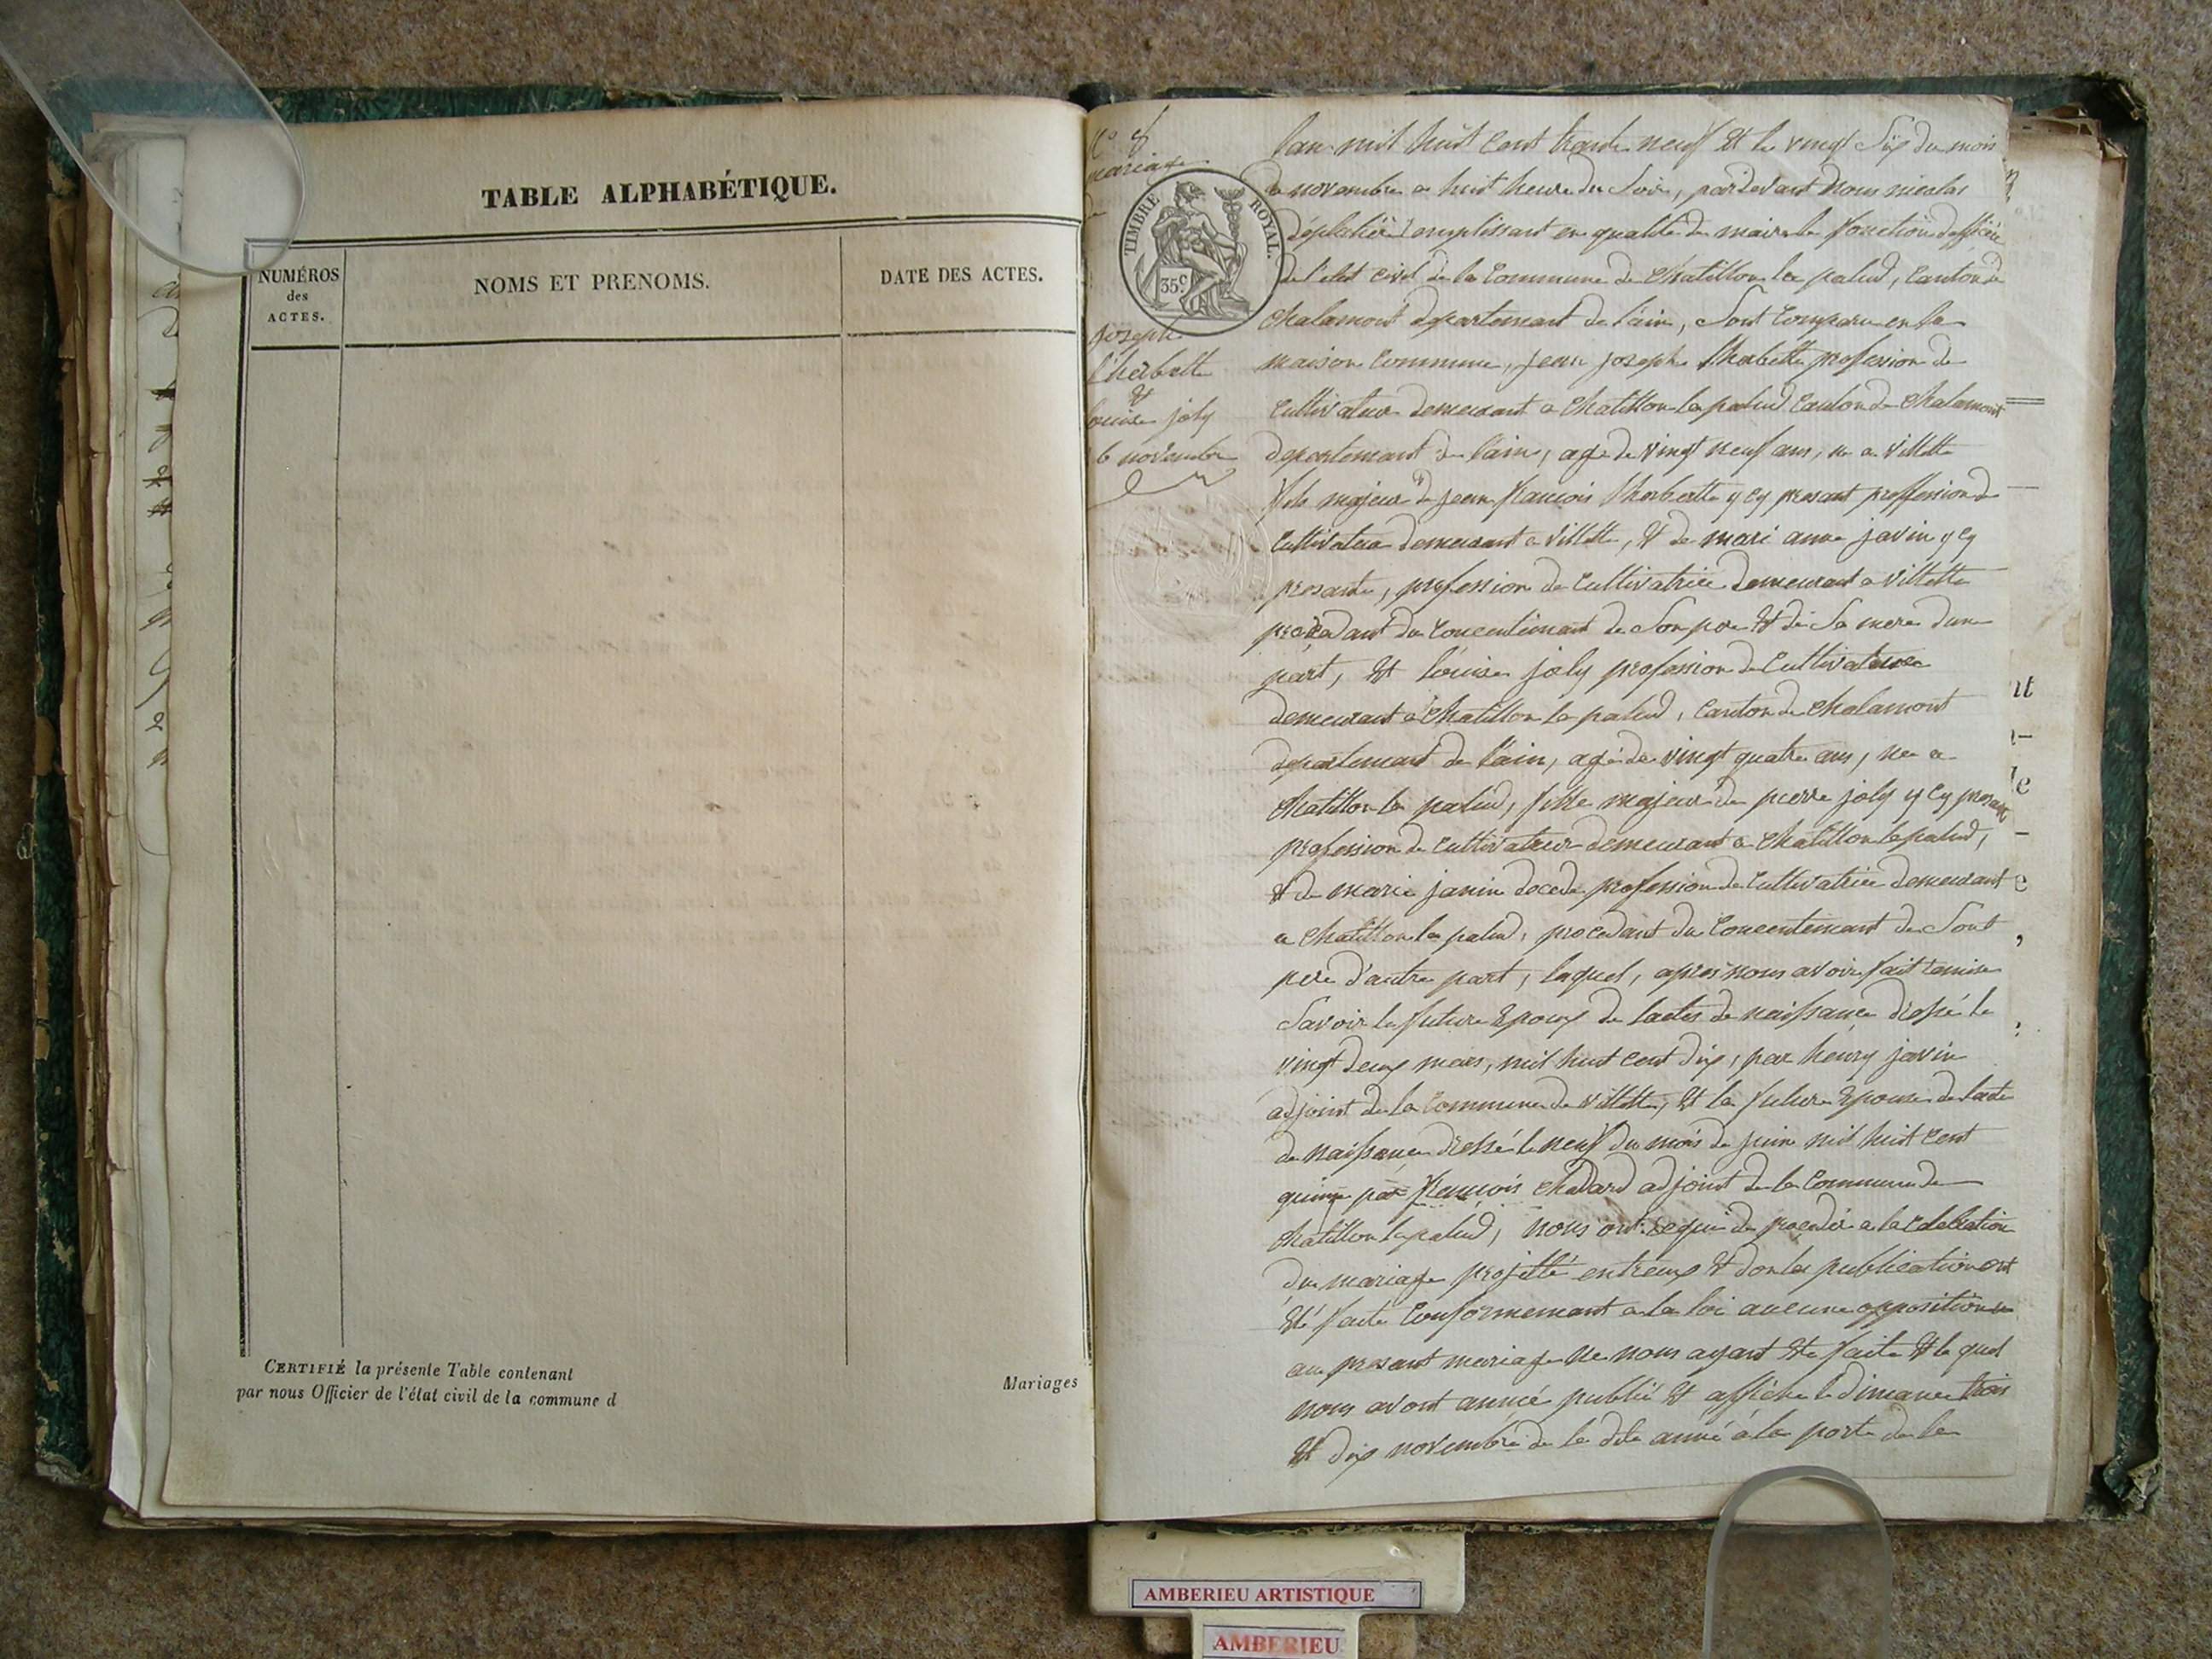 TABLE ALPHABÉTIQUE.
NUMÉROS
des
ACTES.
NOMS ET PRENOMS.
DATE DES ACTES.
CERTIFIÉ la présente Table contenant
par nous Officier de l'état civil de la commune d
Mariages
mariage
TIMBRE ROYAL.
35c
joseph
l'herbette
&
louise joly
6 novembre
lan mil huit cent trante neuf et le vingt six du mois
de novembre a huit heure du soir, pardevant nous nicolas
remplissant en qualité de maire la fonction dofficié
de l'état civil de la commune de chatillon la palud, canton de
chalamont departemant de l'ain, sont comparu en la
maison commune, jean joseph lherbette profession de
cultivateur demeurant a chatillon la palud canton de chalamont
departemant de l'ain, agé de vingt neuf ans, né a villette
fils majeur de jean francois lherbette y cy presant proffession de
cultivateur demeurant a villette, et de mari anne javin y cy
presante, profession de cultivatrice demeurant a villette
procedant du concentemant de son pere et de sa mere dune
part, et louise joly profession de cultivatrice
demeurant a chatillon la palud, canton de chalamont
departemant de l'ain, agé de vingt quatre ans, né a
chatillon la palud, fille majeur de pierre joly y cy presant
profession de cultivateur demeurant a chatillon la palud,
et de marie janin decede profession de cultivatrice demeurant
a chatillon la palud, procedant du concentemant de sont
pere d'autre part, lequel, apres nous avoir fait remise
savoir le future epoux de lactes de naissance dressé le
vingt deux mars, mil huit cent dix, par henry javin
adjoint de la commune de villette, et la future epouse de lacte
de naissance dressé le neuf du mois de juin mil huit cent
quinze par francois chavard adjoint de la commune de
chatillon la palud, nous ont requi de procedér a la celebration
du mariage projetté entreux et don les publication ont
été faite conformemant a la loi aucune opposition
au presant mariage ne nous ayant été faite et le quel
nous avont annué publié et affiché le dimanche trois
et dix novembre de la dite année a la porte de la
AMBERIEU ARTISTIQUE
AMBERIEU